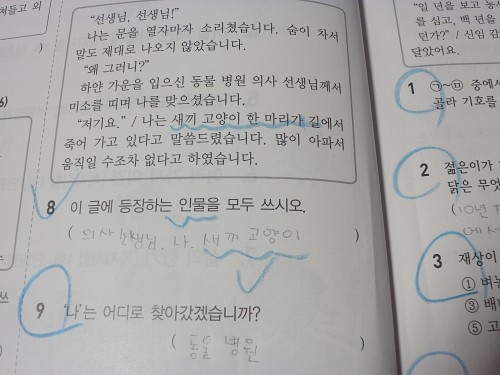 쳐들고 외
"선생님, 선생님!"
나는 문을 열자마자 소리쳤습니다. 숨이 차서
말도 제대로 나오지 않았습니다.
"왜 그러니?"
하얀 가운을 입으신 동물 병원 의사 선생님께서
미소를 띠며 나를 맞으셨습니다.
"저기요." / 나는 새끼 고양이 한 마리가 길에서
죽어 가고 있다고 말씀드렸습니다. 많이 아파서
움직일 수조차 없다고 하였습니다.
8 이 글에 등장하는 인물을 모두 쓰시오.
( 의사 선생님. 나. 새끼 고양이 )
9 '나'는 어디로 찾아갔겠습니까?
( 동물 병원 )
"일 년을 보고 농사
를 심고, 백 년을
먼가?" / 신임 감
달았어요.
1 ㉠~㉤ 중에서
골라 기호를
2 젊은이가
닮은 무엇
(10년
에서
3 재상이
① 벼는
③ 배
⑤ 고